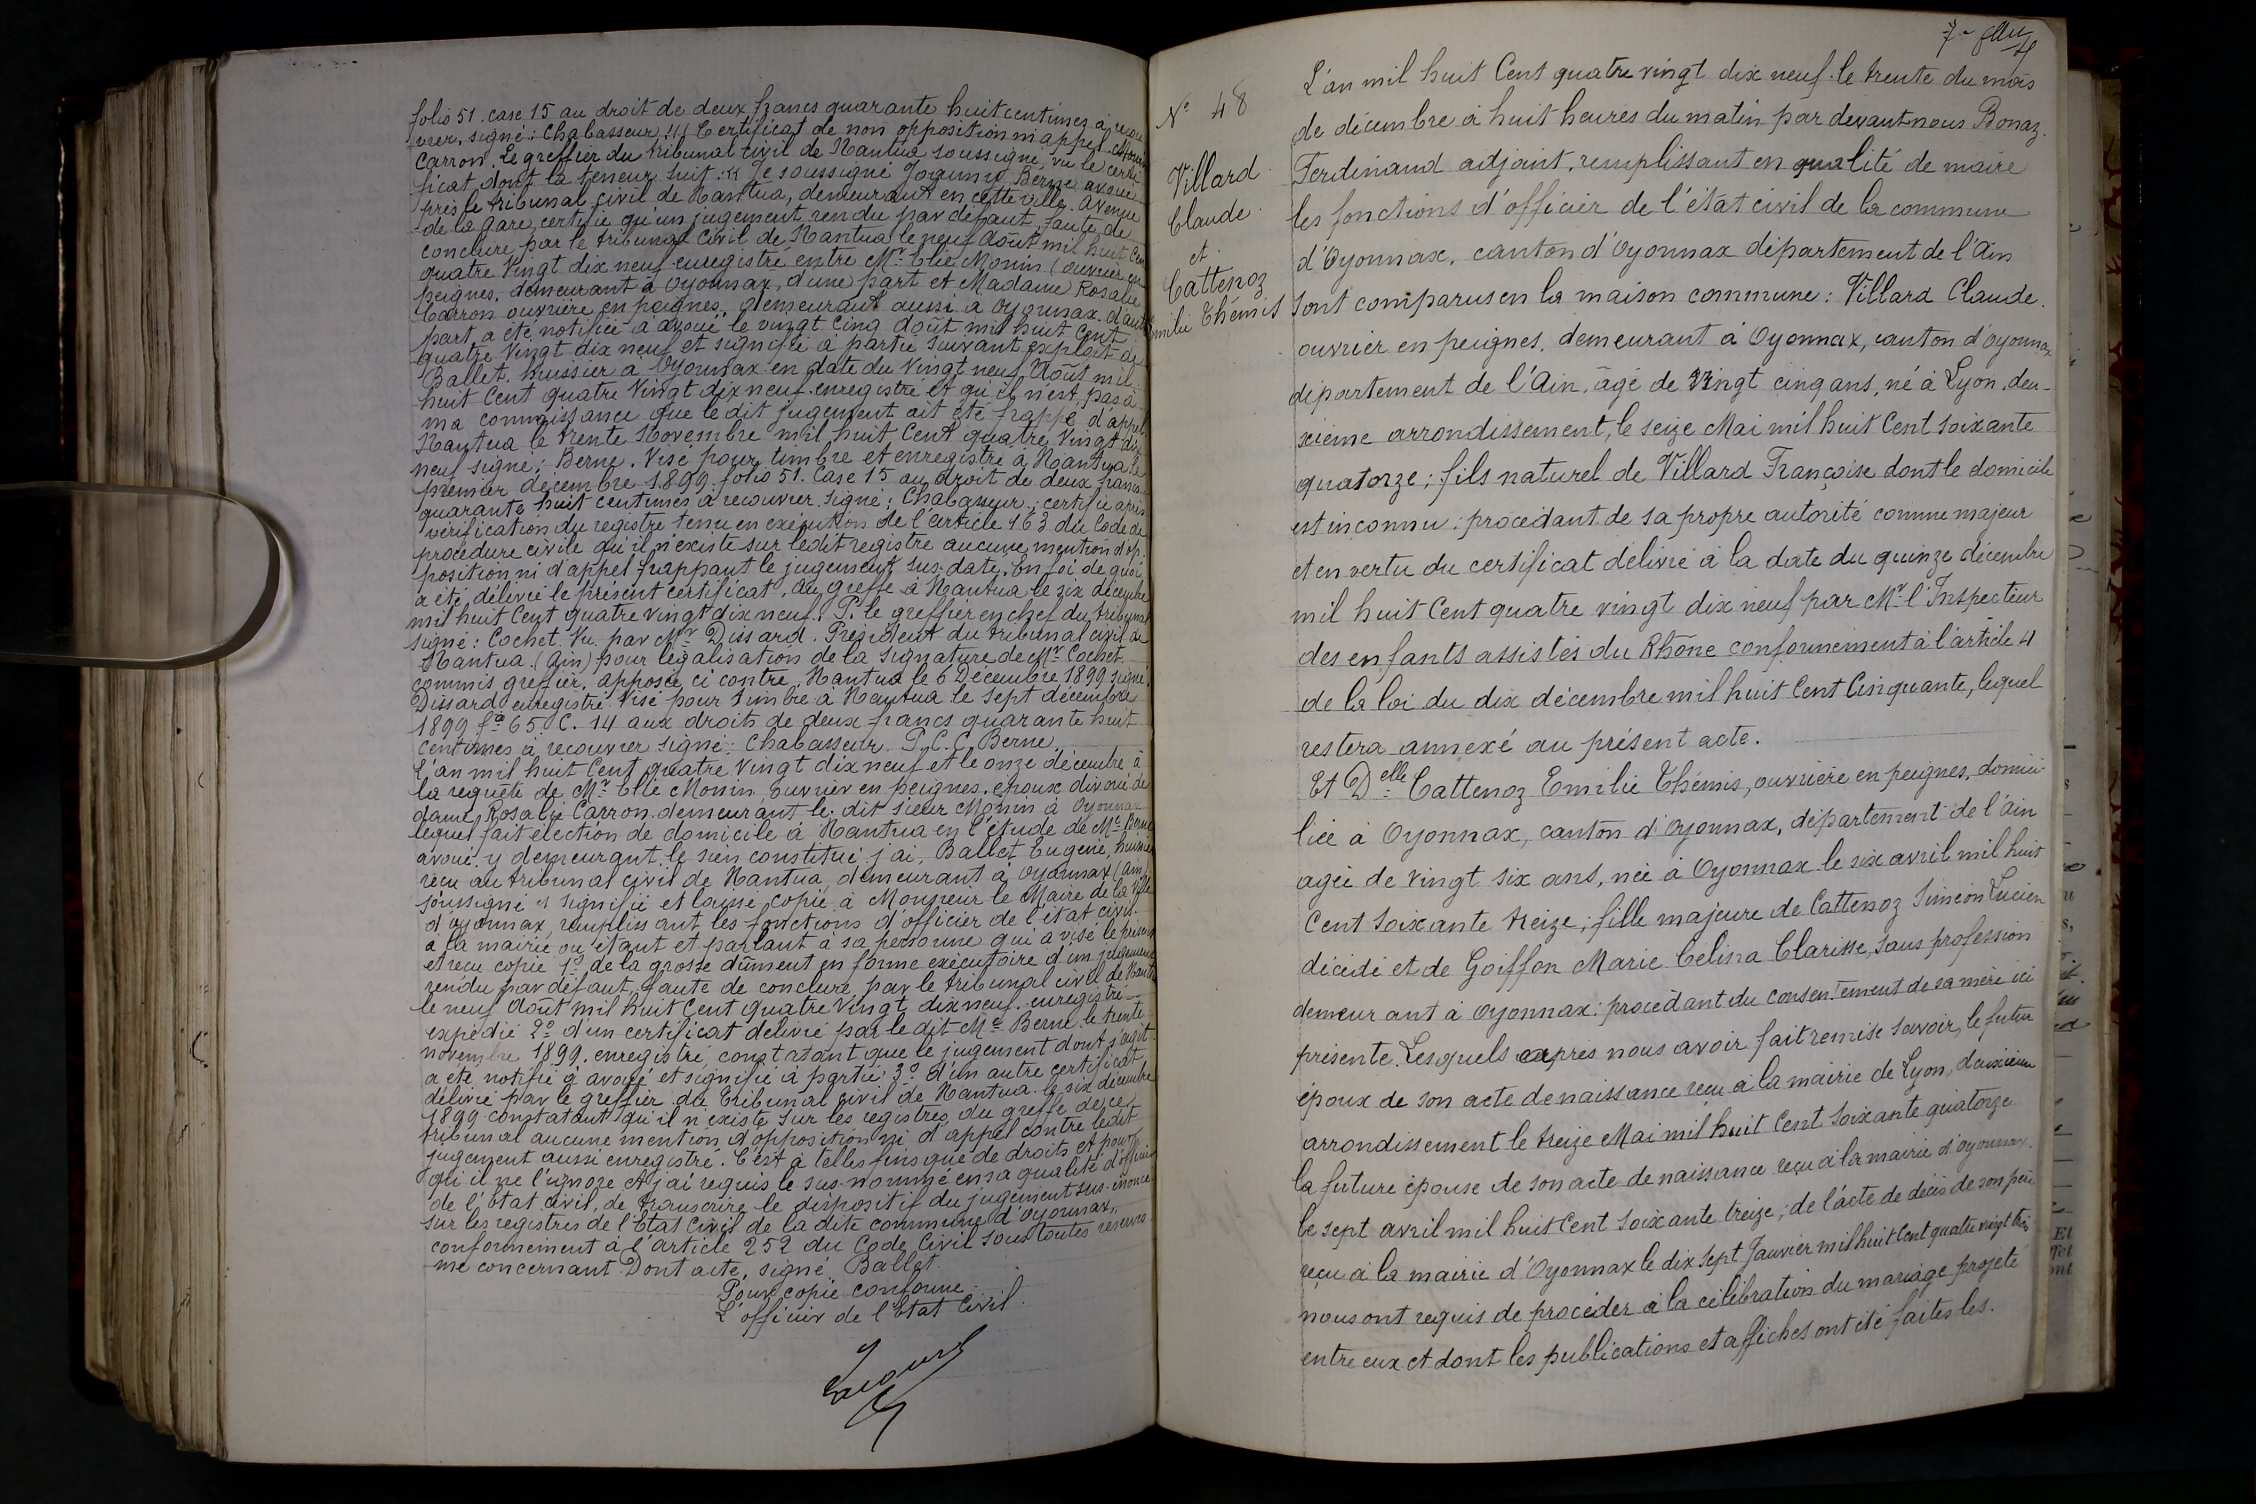 folio 51. case 15 au droit de deux francs quarante huit centimes à recou-
vrer. signé: Chabasseur. 4/ Certificat de non opposition ni appel. Monin
Carron. Le greffier du tribunal civil de Nantua soussigné, vu le certi
ficat, dont la teneur suit: « Je soussigné Berne avoué
près le tribunal civil de Nantua, demeurant en cette ville. Avenue
de la Gare, certifie qu'un jugement rendu par défaut, faute de
conclure par le tribunal civil de Nantua le neuf Août mil huit Cent
quatre Vingt dix neuf enregistré entre Mr Elie Monin (ouvrier en
peignes. demeurant à Oyonnax, d'une part et Madame Rosalie
Carron ouvrière en peignes, demeurant aussi à Oyonnax. d'autre
part a été notifié à avoué le vingt Cinq Août mil huit Cent
quatre Vingt dix neuf et signifié à partie suivant exploit de
Ballet. huissier à Oyonnax en date du Vingt neuf Août mil
huit Cent quatre Vingt dix neuf enregistré et qu'il n'est pas à
ma connaissance que le dit jugement ait été frappé d'appel
Nantua le trente Novembre mil huit Cent quatre Vingt dix
neuf signé: Berne. Visé pour timbre et enregistré à Nantua le
premier décembre 1899. folio 51. Case 15 au droit de deux francs
quarante huit centimes à recouvrer. signé: Chabasseur, certifie après
vérification du registre tenu en exécution de l'article 163 du Code de
procédure civile qu'il n'existe sur ledit registre aucune mention d'op-
position ni d'appel frappant le jugement sus-daté. En foi de quoi
a été délivré le présent certificat. Au greffe à Nantua le six décembre
mil huit Cent quatre vingt dix neuf. P. le greffier en chef du tribunal
signé: Cochet. Vu par Mr Dissard. Président du tribunal civil de
Nantua. (Ain) pour légalisation de la signature de Mr Cochet
commis greffier, apposée ci contre. Nantua le 6 Décembre 1899 signé
Dissard enregistré Visé pour timbre à Nantua le sept décembre
1899 fo 65. C. 14 aux droits de deux francs quarante huit
centimes à recouvrer signé: Chabasseur P. C. C. Berne.
L'an mil huit Cent quatre Vingt dix neuf et le onze décembre à
la requête de Mr Elie Monin, ouvrier en peignes. époux divorcé de
dame Rosalie Carron. demeurant le dit sieur Monin à Oyonnax
lequel fait élection de domicile à Nantua en l'étude de Me Berne
avoué y demeurant. le sien constitué j'ai, Ballet Eugène, huissier
reçu au tribunal civil de Nantua, demeurant à Oyonnax (Ain)
soussigné signifié et laissé copie à Monsieur le Maire de la Ville
d'Oyonnax, remplissant les fonctions d'officier de l'état civil.
à la mairie ou étant et parlant à sa personne qui a visé le présent
et reçu copie 1o de la grosse dûment en forme exécutoire d'un jugement
rendu par défaut, faute de conclure, par le tribunal civil de Nantua
le neuf Août mil huit Cent quatre Vingt dix neuf. enregistré
expédié 2o d'un certificat délivré par le dit Me Berne. le trente
novembre 1899. enregistré, constatant que le jugement dont s'agit
a été notifié à avoué et signifié à partie; 3o d'un autre certificat
délivré par le greffier du tribunal civil de Nantua. le six décembre
1899 constatant qu'il n'existe sur les registres du greffe de ce
tribunal aucune mention d'opposition ni d'appel contre ledit
jugement aussi enregistré. C'est à telles fins que de droits et pour
qu'il ne l'ignore et j'ai requis le sus-nommé en sa qualité d'officier
de l'Etat civil, de transcrire le dispositif du jugement sus-énoncé
sur les registres de l'Etat Civil de la dite commune d'Oyonnax,
conformément à l'article 252 du Code Civil sous toutes réserves
me concernant. Dont acte, signé Ballet
Pour copie conforme
L'officier de l'Etat Civil.
No 48
Villard
Claude
et
Cattenoz
Emilie Thémis
L'an mil huit Cent quatre vingt dix neuf le trente du mois
de décembre à huit heures du matin par devant nous Bonaz
Ferdinand adjoint, remplissant en qualité de maire
les fonctions d'officier de l'état civil de la commune
d'Oyonnax, canton d'Oyonnax département de l'Ain
sont comparus en la maison commune: Villard Claude.
ouvrier en peignes, demeurant à Oyonnax, canton d'Oyonnax
département de l'Ain, âgé de Vingt cinq ans, né à Lyon, deu-
xième arrondissement, le seize Mai mil huit Cent soixante
quatorze; fils naturel de Villard Françoise dont le domicile
est inconnu: procédant de sa propre autorité comme majeur
et en vertu du certificat délivré à la date du quinze décembre
mil huit Cent quatre vingt dix neuf par Mr l'Inspecteur
des enfants assistés du Rhône conformément à l'article 4
de la loi du dix décembre mil huit Cent Cinquante, lequel
restera annexé au présent acte.
Et Delle Cattenoz Emilie Thémis, ouvrière en peignes, domici-
liée à Oyonnax, canton d'Oyonnax, département de l'Ain
agée de Vingt six ans, née à Oyonnax le six avril mil huit
Cent Soixante treize; fille majeure de Cattenoz Siméon Lucien
décédé et de Goiffon Marie Celina Clarisse, sans profession
demeurant à Oyonnax: procédant du consentement de sa mère ici
présente. Lesquels après nous avoir fait remise savoir, le futur
époux de son acte de naissance reçu à la mairie de Lyon, deuxième
arrondissement le treize Mai mil huit Cent Soixante quatorze
la future épouse de son acte de naissance reçu à la mairie d'Oyonnax.
le sept avril mil huit Cent soixante treize; de l'acte de décès de son père
reçu à la mairie d'Oyonnax le dix sept Janvier mil huit Cent quatre vingt trois
nous ont requis de procéder à la célébration du mariage projeté
entre eux et dont les publications et affiches ont été faites les.